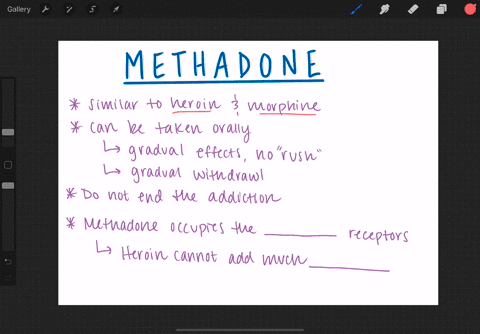 Gallery
METHADONE
* similar to heroin & morphine
* can be taken orally
↳ gradual effects, no "rush"
↳ gradual withdrawl
* Do not end the addiction
* Methadone occupies the ________ receptors
↳ Heroin cannot add much ________